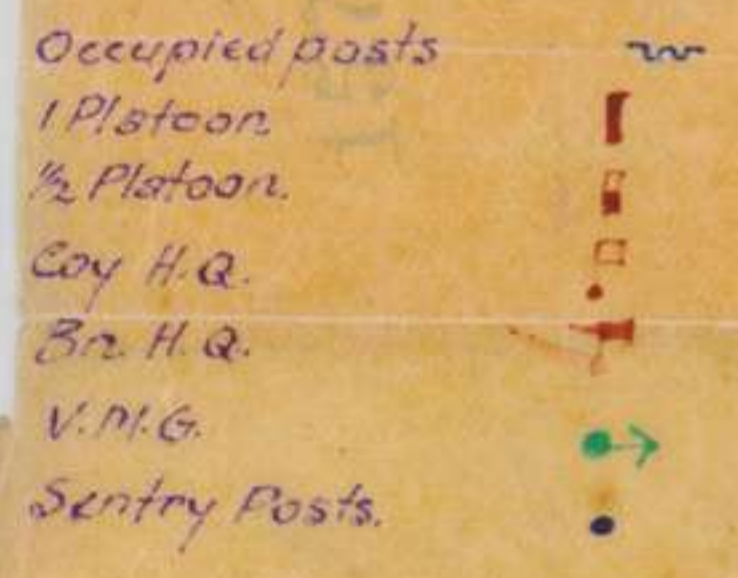 Occupied posts
1 Platoon
½ Platoon.
Coy H.Q.
Bn. H.Q.
V.M.G.
Sentry Posts.